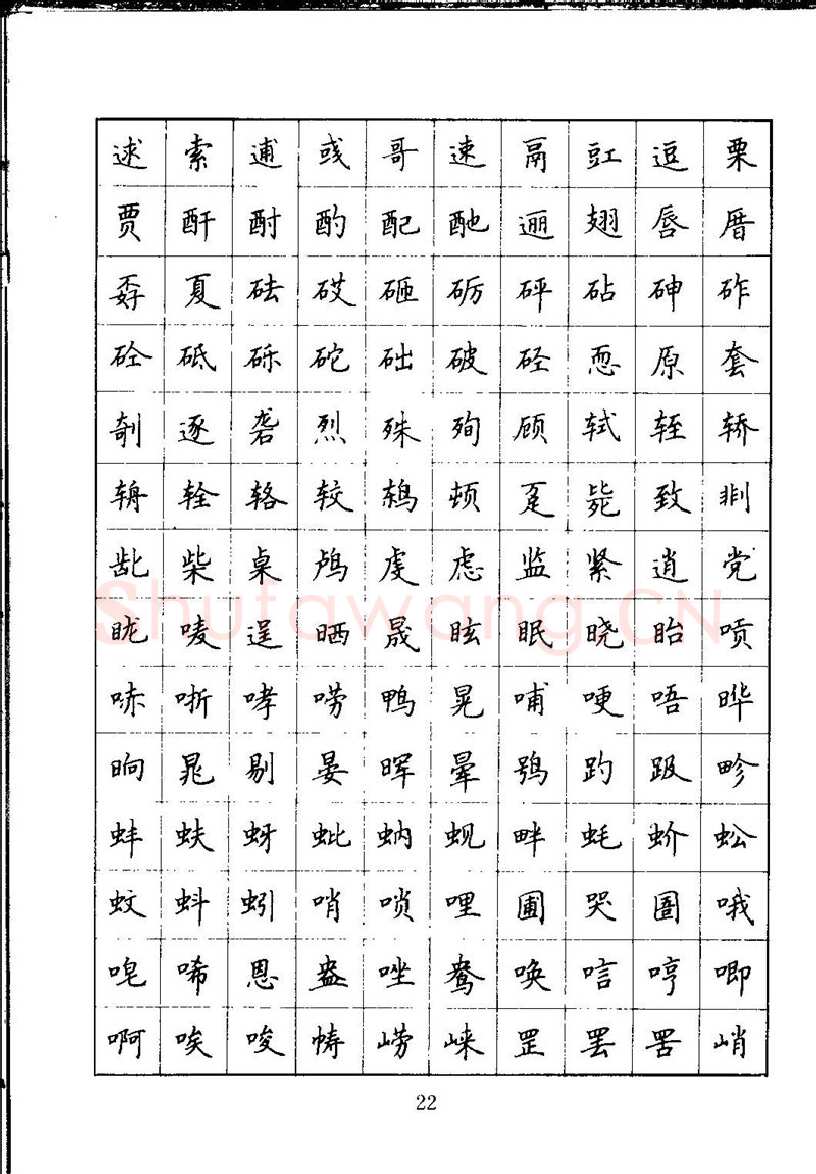 逑索逋彧哥速鬲豇逗栗
贾酐酎酌配酏逦翅唇厝
孬夏砝砹砸砺砰砧砷砟
砼砥砾砣础破硁恧原套
剞逐砻烈殊殉顾轼轾轿
辀辁辂较鸫顿趸毙致剕
龀柴桌鸬虔虑监紧逍党
眬唛逞晒晟眩眠晓眙唝
哧哳哮唠鸭晃哺哽唔晔
晌晁剔晏晖晕鸮趵趿畛
蚌蚨蚜蚍蚋蚬畔蚝蚧蚣
蚊蚪蚓哨唢哩圃哭圄哦
唣唏恩盎唑鸯唤唁哼唧
啊唉唆帱崂崃罡罢罟峭
22
Shufawang.CN